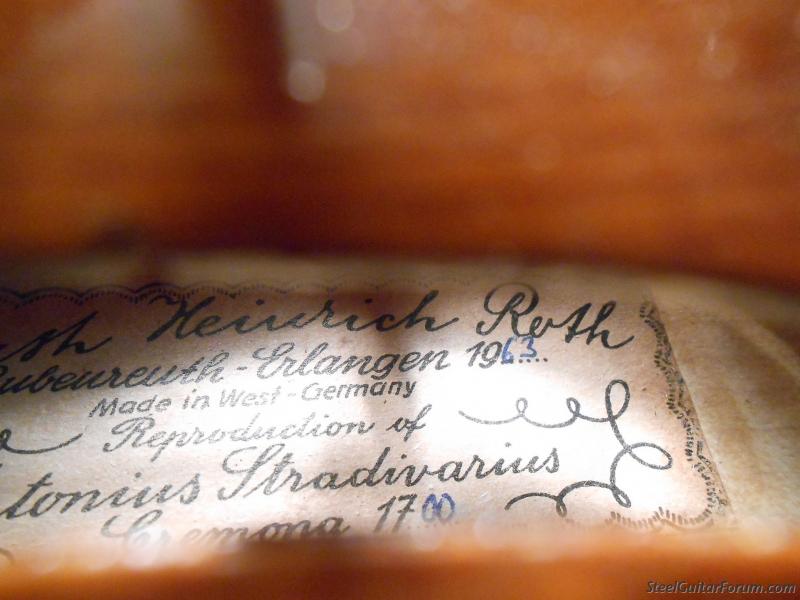 Heinrich Roth
ubenreuth-Erlangen 1963
Made in West-Germany
Reproduction of
tonius Stradivarius
Cremona 1700
SteelGuitarForum.com